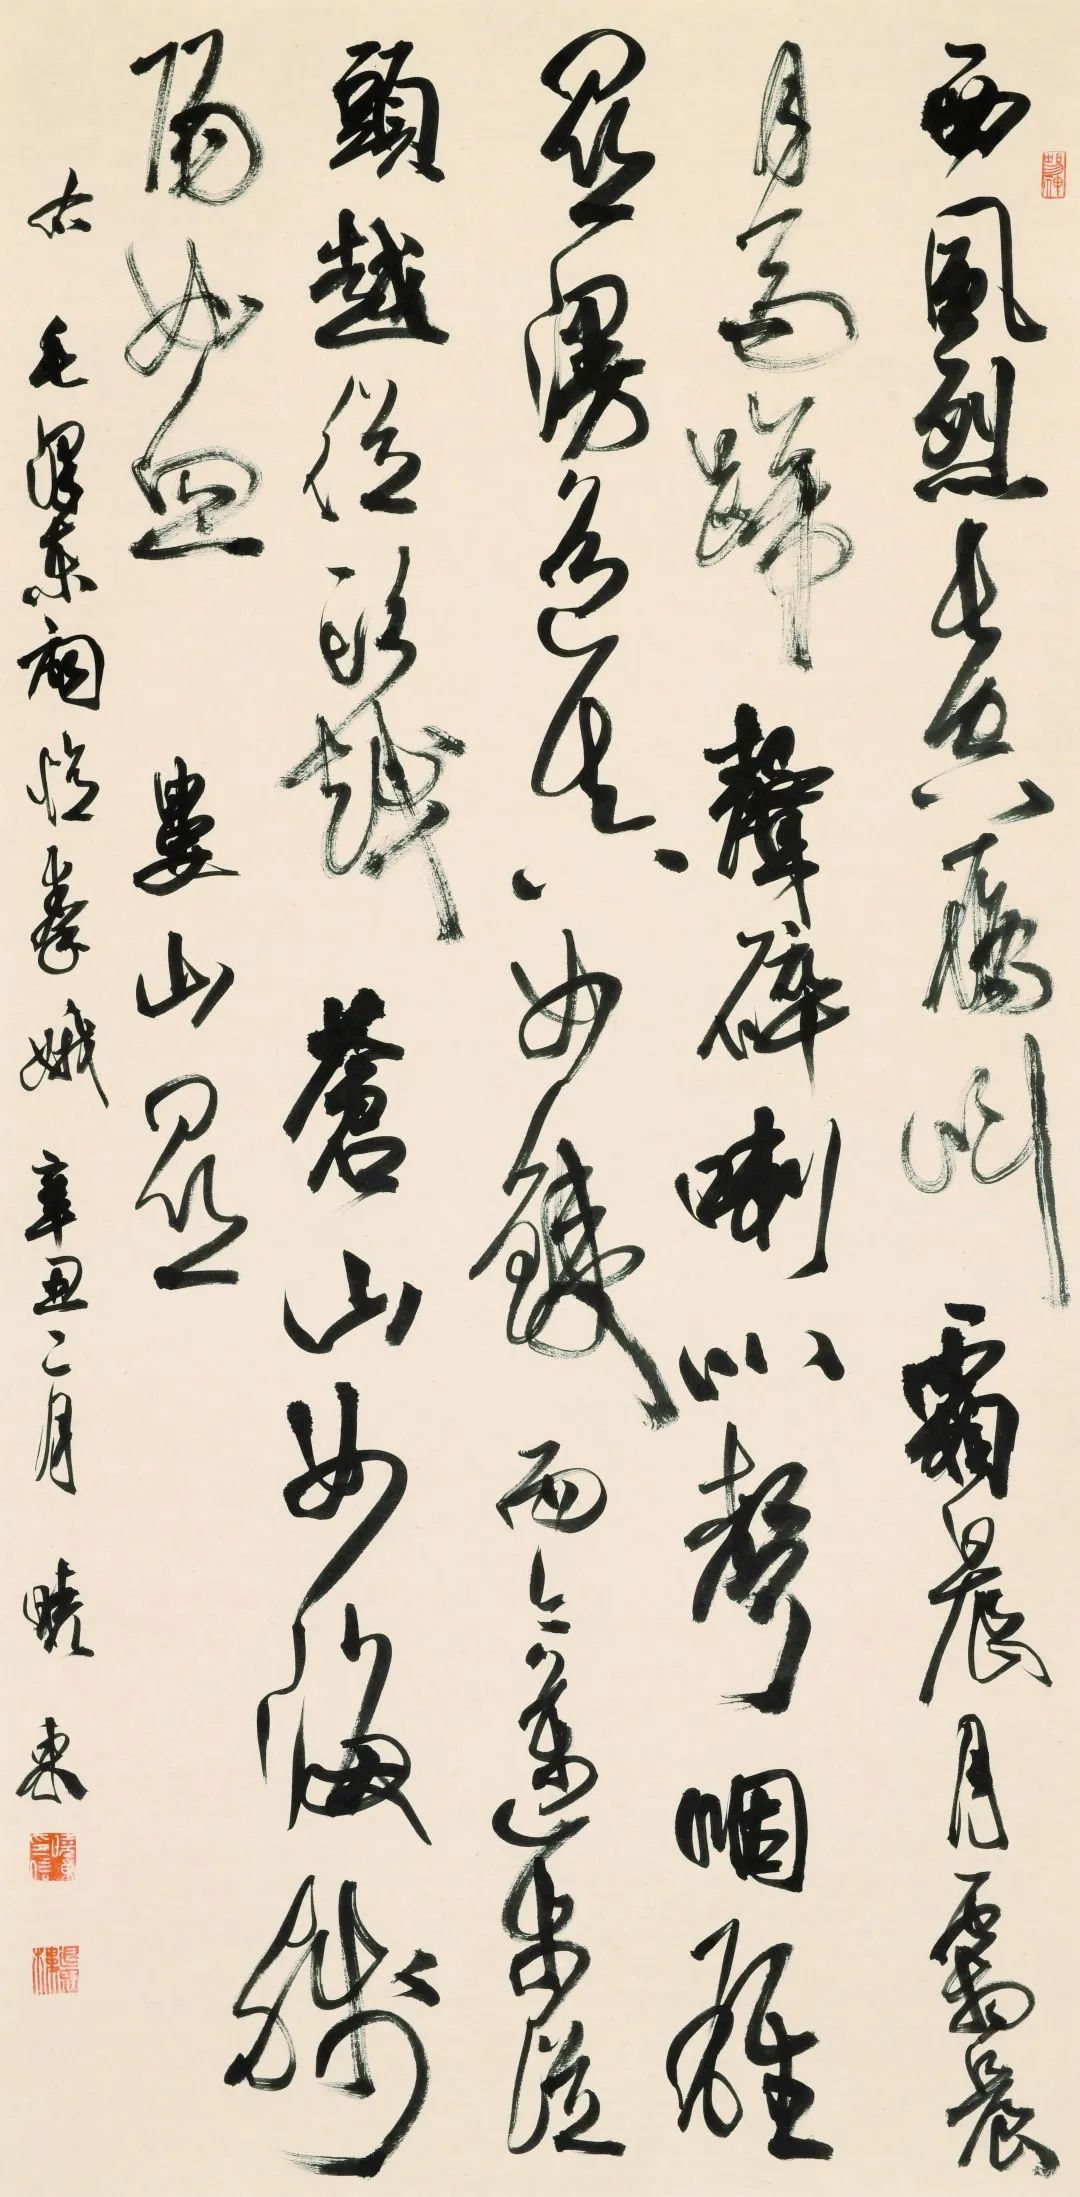 西風烈長空鴈叫霜晨月霜晨
月馬蹄聲碎喇叭聲咽雄
關漫道真如鐵而今邁步從
頭越從頭越蒼山如海殘
陽如血 婁山關
右毛澤東詞憶秦娥 辛丑二月 曉東